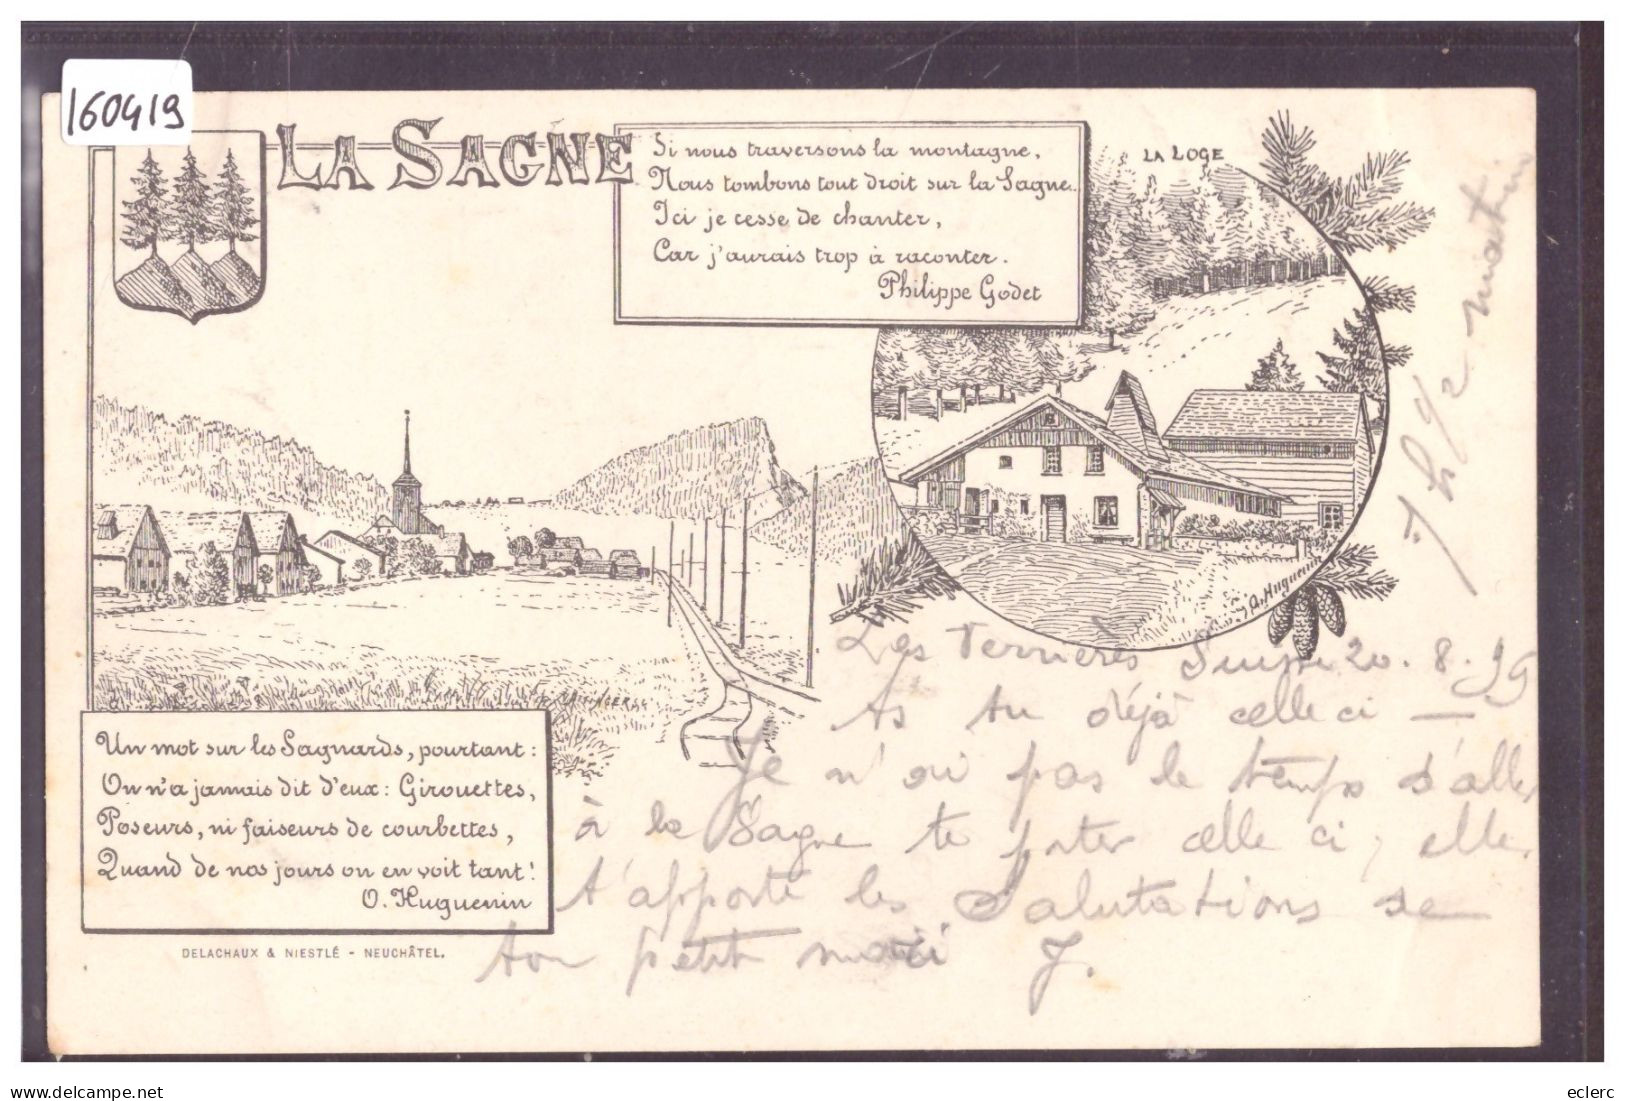 160419
LA SAGNE
Si nous traversons la montagne,
Nous tombons tout droit sur la Sagne.
Ici je cesse de chanter,
Car j'aurais trop à raconter.
Philippe Godet
LA LOGE
7 h 1/2 matin
O. Huguenin
Les
20. 8. 99
As tu déjà celle ci —
Je n'ai pas le temps d'aller
à la Sagne te porter celle ci, elle
t'apporte les Salutations de
ton petit mari J.
Un mot sur les Sagnards, pourtant:
On n'a jamais dit d'eux: Girouettes,
Poseurs, ni faiseurs de courbettes,
Quand de nos jours on en voit tant!
O. Huguenin
DELACHAUX & NIESTLÉ - NEUCHÂTEL.
eclerc